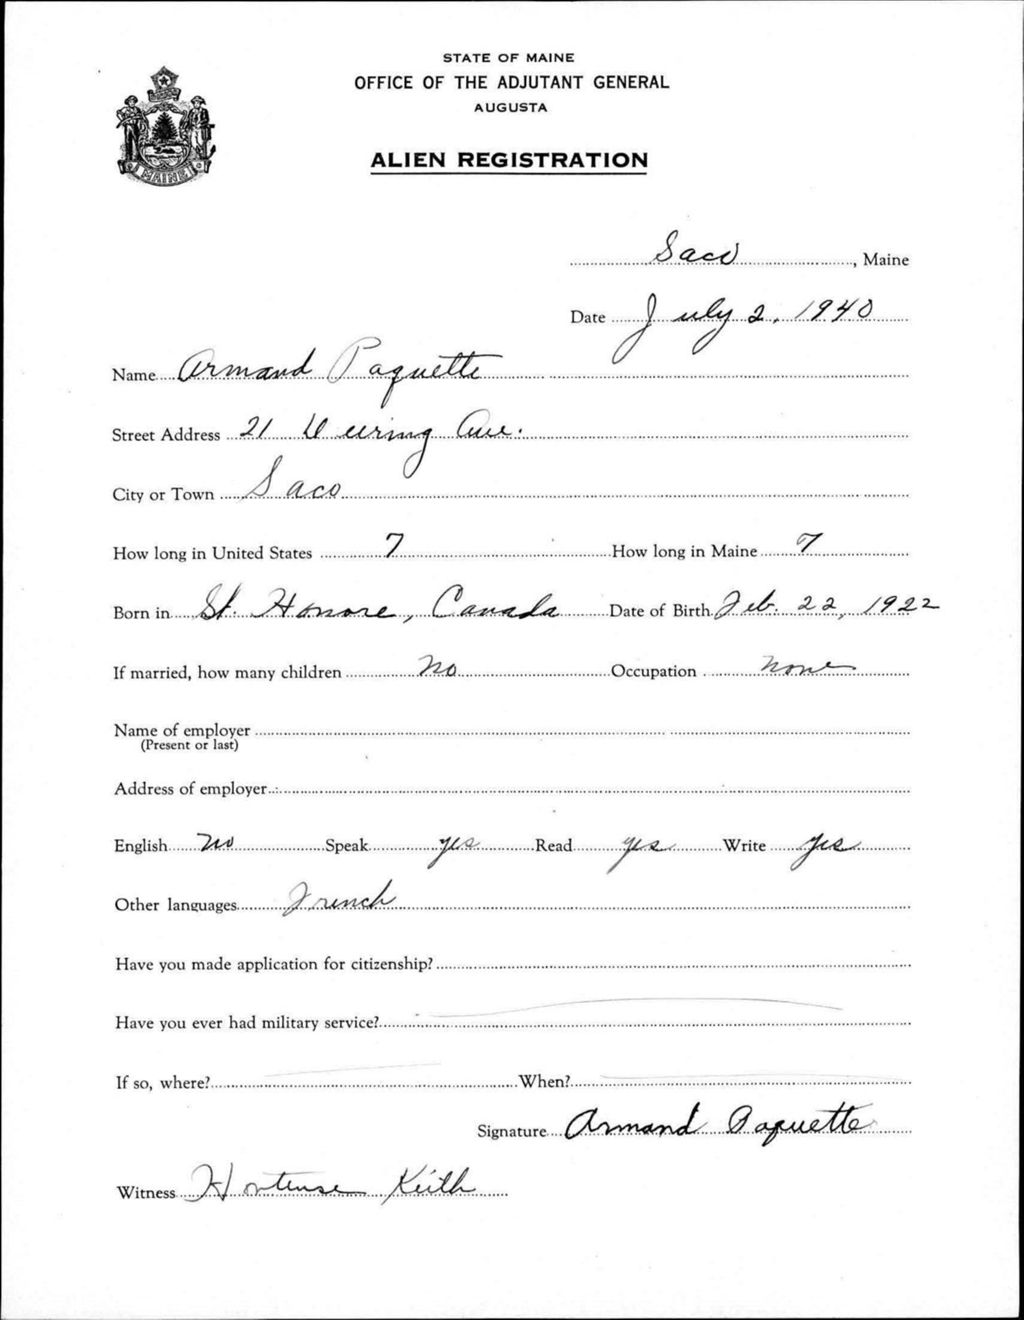 STATE OF MAINE
OFFICE OF THE ADJUTANT GENERAL
AUGUSTA
ALIEN REGISTRATION
MAINE
Saco, Maine
Date July 2, 1940
Name Armand Paquette
Street Address 21 Deering Ave.
City or Town Saco
How long in United States 7 How long in Maine 7
Born in St. Honore, Canada Date of Birth Feb. 22, 1922
If married, how many children No Occupation None
Name of employer
(Present or last)
Address of employer
English No Speak yes Read yes Write yes
Other languages French
Have you made application for citizenship?
Have you ever had military service?
If so, where? When?
Signature Armand Paquette
Witness Hortense Keith